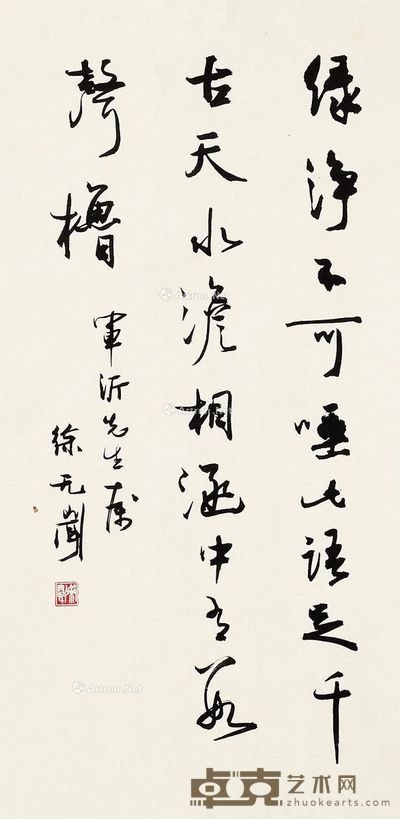 綠淨不可唾此語足千
古天水澹相涵中有數
聲櫓
軍沂先生
徐无聞
Artron.Net
Artron.Net
Artron.Net
卓克艺术网
zhuokearts.com